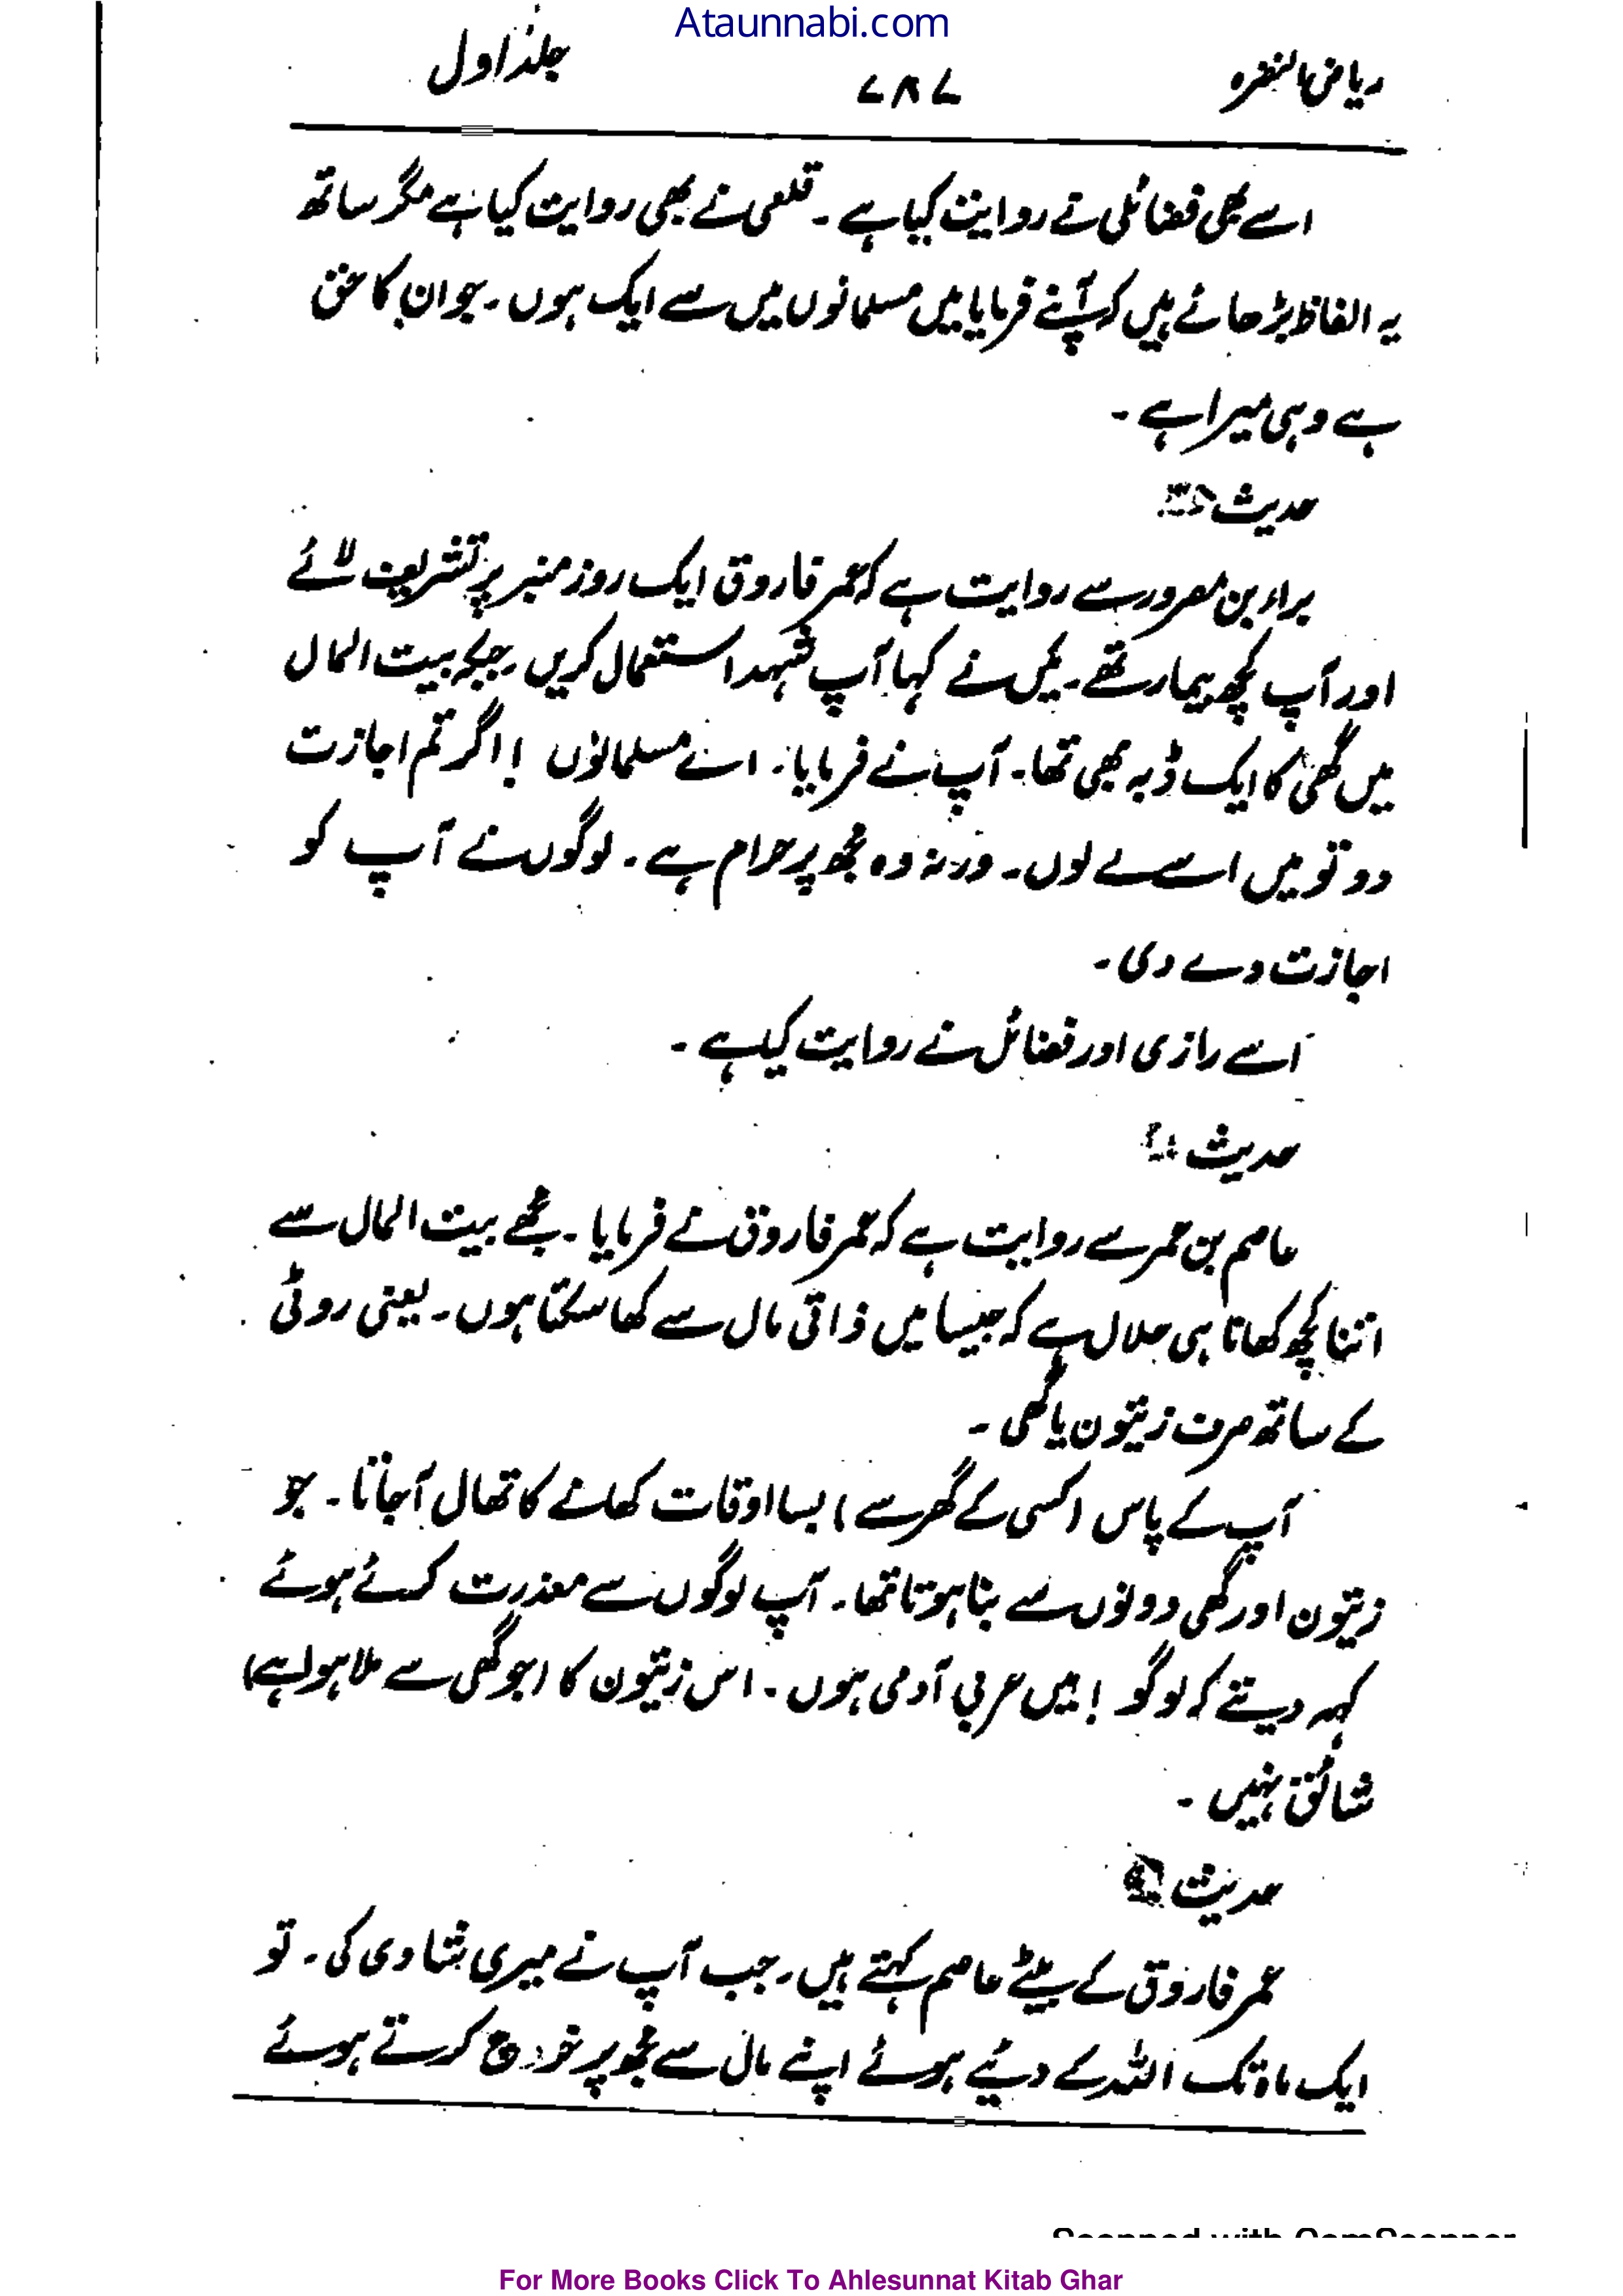 Ataunnabi.com
ریاض النضرہ ۷۸۷ جلد اول
اسے بھی فضائلی نے روایت کیا ہے ۔ قلعی نے بھی روایت کیا ہے مگر ساتھ
یہ الفاظ بڑھائے ہیں کہ آپنے فرمایا میں مسلمانوں میں سے ایک ہوں ۔ جو ان کا حق
ہے وہی میرا ہے ۔
حدیث
براء بن معرور سے روایت ہے کہ عمر فاروق ایک روز منبر پر تشریف لائے
اور آپ کچھ بیمار تھے ۔ میں نے کہا آپ شہد استعمال کریں ۔ جبکہ بیت المال
میں گھی کا ایک ڈبہ بھی تھا ۔ آپ نے فرمایا ۔ اے مسلمانوں ! اگر تم اجازت
دو تو میں اسے لے لوں ۔ ورنہ وہ مجھ پر حرام ہے ۔ لوگوں نے آپ کو
اجازت دے دی ۔
اسے رازی اور فضائل نے روایت کیا ہے ۔
حدیث
عاصم بن عمر سے روایت ہے کہ عمر فاروق نے فرمایا ۔ مجھے بیت المال سے
اتنا کچھ کھانا ہی حلال ہے کہ جیسا میں ذاتی مال سے کھا سکتا ہوں ۔ یعنی روٹی
کے ساتھ صرف زیتون یا گھی ۔
آپ کے پاس (کسی کے گھر سے) بسا اوقات کھانے کا تھال آجاتا ۔ جو
زیتون اور گھی دونوں سے بنا ہوتا تھا ۔ آپ لوگوں سے معذرت کرتے ہوئے
کہہ دیتے کہ لوگو ! میں عربی آدمی ہوں ۔ اس زیتون کا (جو گھی سے ملا ہوا ہے)
شائق نہیں ۔
حدیث
عمر فاروق کے بیٹے عاصم کہتے ہیں ۔ جب آپ نے میری شادی کی ۔ تو
ایک ماہ تک اللہ کے دیئے ہوئے اپنے مال سے مجھ پر خرچ کرتے ہوئے
Scanned with CamScanner
For More Books Click To Ahlesunnat Kitab Ghar